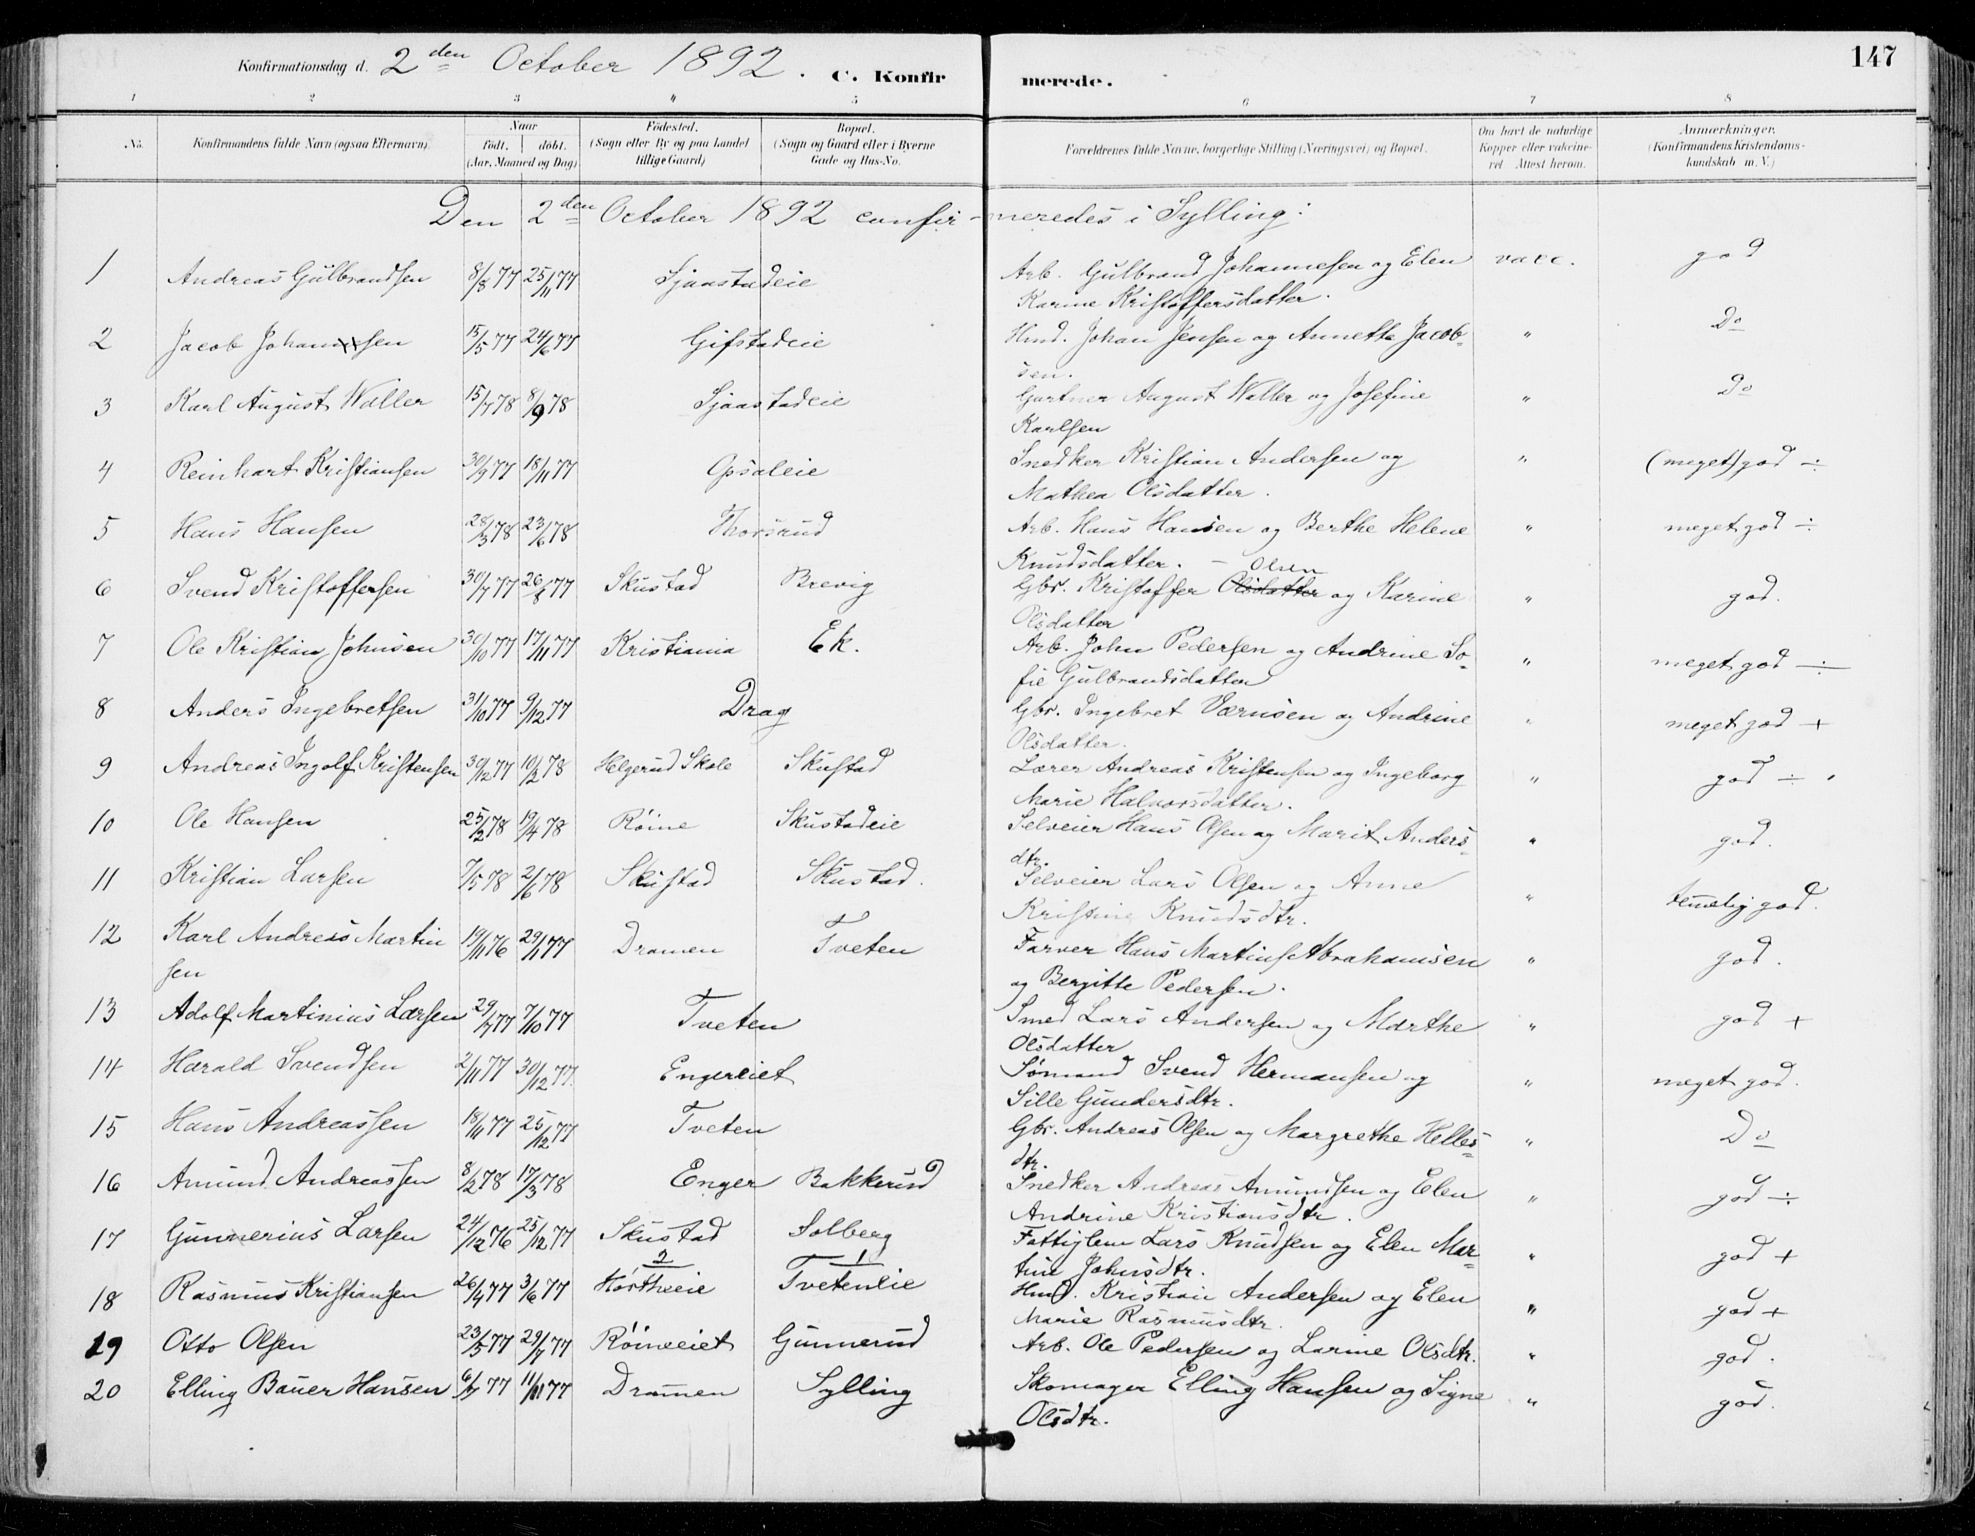 147
Konfirmationsdag d. 2den October 1892. C. Konfirmerede.
1 2 3 4 5 6 7 8
No. Konfirmandens fulde Navn (ogsaa Efternavn). Naar født. døbt. (Aar, Maaned og Dag) Fødested. (Sogn eller By og paa Landet tillige Gaard) Bopæl. (Sogn og Gaard eller i Byerne Gade og Hus-No. Forældrenes fulde Navne, borgerlige Stilling (Næringsvei) og Bopæl. Om havt de naturlige Kopper eller vakcineret. Attest herom. Anmærkninger. (Konfirmandens Kristendomskundskab m. V.)
Den 2den October 1892 confirmeredes i Sylling:
1 Andreas Gulbrandsen 8/8 77 25/11 77 Sjaastadeie Arb. Gulbrand Johannesen og Elen vacc. god
Karine Kristoffersdatter.
2 Jacob Johansen 15/5 77 24/6 77 Gifstadeie Hmd. Johan Jensen og Annette Jacob- " Do
sen.
3 Karl August Waller 15/7 78 8/9 78 Sjaastadeie Gartner August Waller og Josefine " Do
Karlsen
4 Reinhart Kristiansen 30/9 77 18/11 77 Opsaleie Snedker Kristian Andersen og " (meget) god ÷
Mathea Olsdatter.
5 Hans Hansen 28/3 78 23/6 78 Thorsrud Arb. Hans Hansen og Berthe Helene " meget god ÷
Knudsdatter. – Olsen
6 Svend Kristoffersen 30/7 77 26/8 77 Skustad Brevig Gbr. Kristoffer Olsdatter og Karine " god.
Olsdatter
7 Ole Kristian Johnsen 30/10 77 17/11 77 Kristiania Ek. Arb. John Pedersen og Andrine So- " meget god ÷
fie Gulbrandsdatter
8 Anders Ingebretsen 31/10 77 9/12 77 Drag Gbr. Ingebret Værnsen og Andrine " meget god +
Olsdatter.
9 Andreas Ingolf Kristensen 30/12 77 10/2 78 Helgerud Skole Skustad Lærer Andreas Kristensen og Ingeborg " god ÷
Marie Halvorsdatter.
10 Ole Hansen 25/2 78 19/4 78 Röine Skustadeie Selveier Hans Olsen og Marit Anders- " god.
dtr.
11 Kristian Larsen 7/5 78 2/6 78 Skustad Skustad. Selveier Lars Olsen og Anne " temelig god.
Kristine Knudsdtr.
12 Karl Andreas Martin 19/11 76 29/1 77 Dramen Tveten Farver Hans Martins Abrahamsen " god.
sen og Bergitte Pedersen.
13 Adolf Martinius Larsen 29/7 77 7/10 77 Tveten Smed Lars Andersen og Marthe " god +
Olsdatter
14 Harald Svendsen 2/11 77 30/12 77 Engereiet Sømand Svend Hermansen og " meget god.
Sille Gundersdtr.
15 Hans Andreassen 18/11 77 25/12 77 Tveten Gbr. Andreas Olsen og Margrethe Helles- " Do
dtr.
16 Amund Andreassen 8/2 78 17/3 78 Enger Bakkerud Snedker Andreas Amundsen og Elen " god ÷
Andrine Kristiansdtr.
17 Gunnerius Larsen 24/12 76 25/12 77 Skustad Solberg Fattiglem Lars Knudsen og Elen Mar- " god +
2 1 tine Johnsdtr.
18 Rasmus Kristiansen 26/4 77 3/6 77 Hörtheeie Tveteneie Hmd. Kristian Andersen og Elen " god +
Marie Rasmusdtr.
19 Otto Olsen 23/5 77 29/7 77 Röineeiet Gunnerud Arb. Ole Pedersen og Larine Olsdtr. " god.
20 Elling Bauer Hansen 6/7 77 11/11 77 Dramen Sylling Skomager Elling Hansen og Signe " god.
Olsdtr.